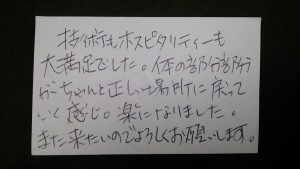 技術もホスピタリティーも
大満足でした。体の部分部分
がちゃんと正しい場所に戻って
いく感じ。楽になりました。
また来たいのでよろしくお願いします。